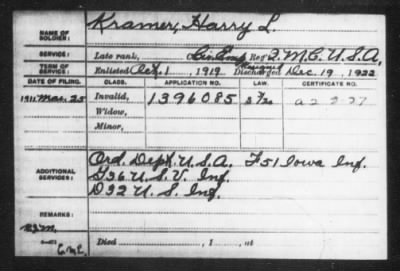 NAME OF SOLDIER: Kramer, Harry L.
SERVICE: Late rank, Civ Emp Reg't Q.M.C. U.S.A.
TERM OF SERVICE: Enlisted Oct. 1, 1919 Discharged Dec. 19, 1922
DATE OF FILING. CLASS. APPLICATION NO. LAW. CERTIFICATE NO.
Mar. 25 Invalid, 1396085
Widow,
Minor,
ADDITIONAL SERVICES: Ord. Dept. U.S.A. F 51 Iowa Inf.
G 26 U.S.V. Inf.
D 22 U.S. Inf.
REMARKS:
Died , 1 , at